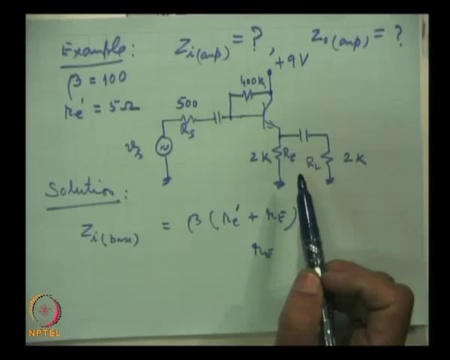 Example: Zi(amp) = ? , Zo(amp) = ?
β = 100
re' = 5Ω
+9V
400K
500
Rs
vs
2K RE RL 2K
Solution:
Zi(base) = β (re' + rE)
rE
NPTEL